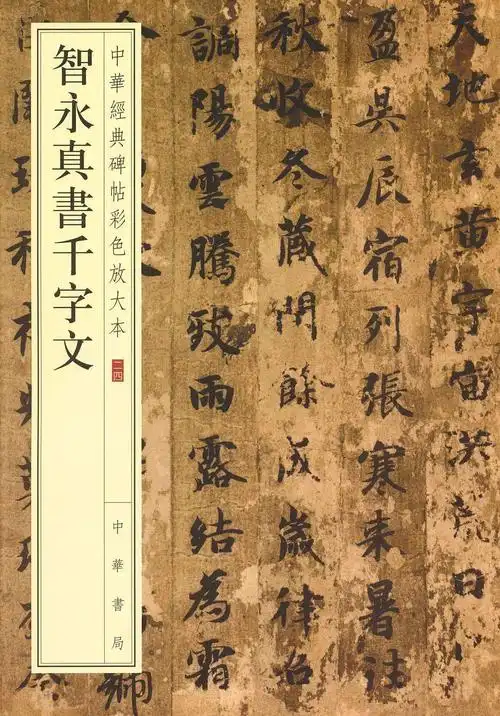 天地玄黃宇宙洪荒日
盈昃辰宿列張寒來暑往
秋收冬藏閏餘成歲律召
調陽雲騰致雨露結為霜
中華經典碑帖彩色放大本 二四
中華書局
智永真書千字文